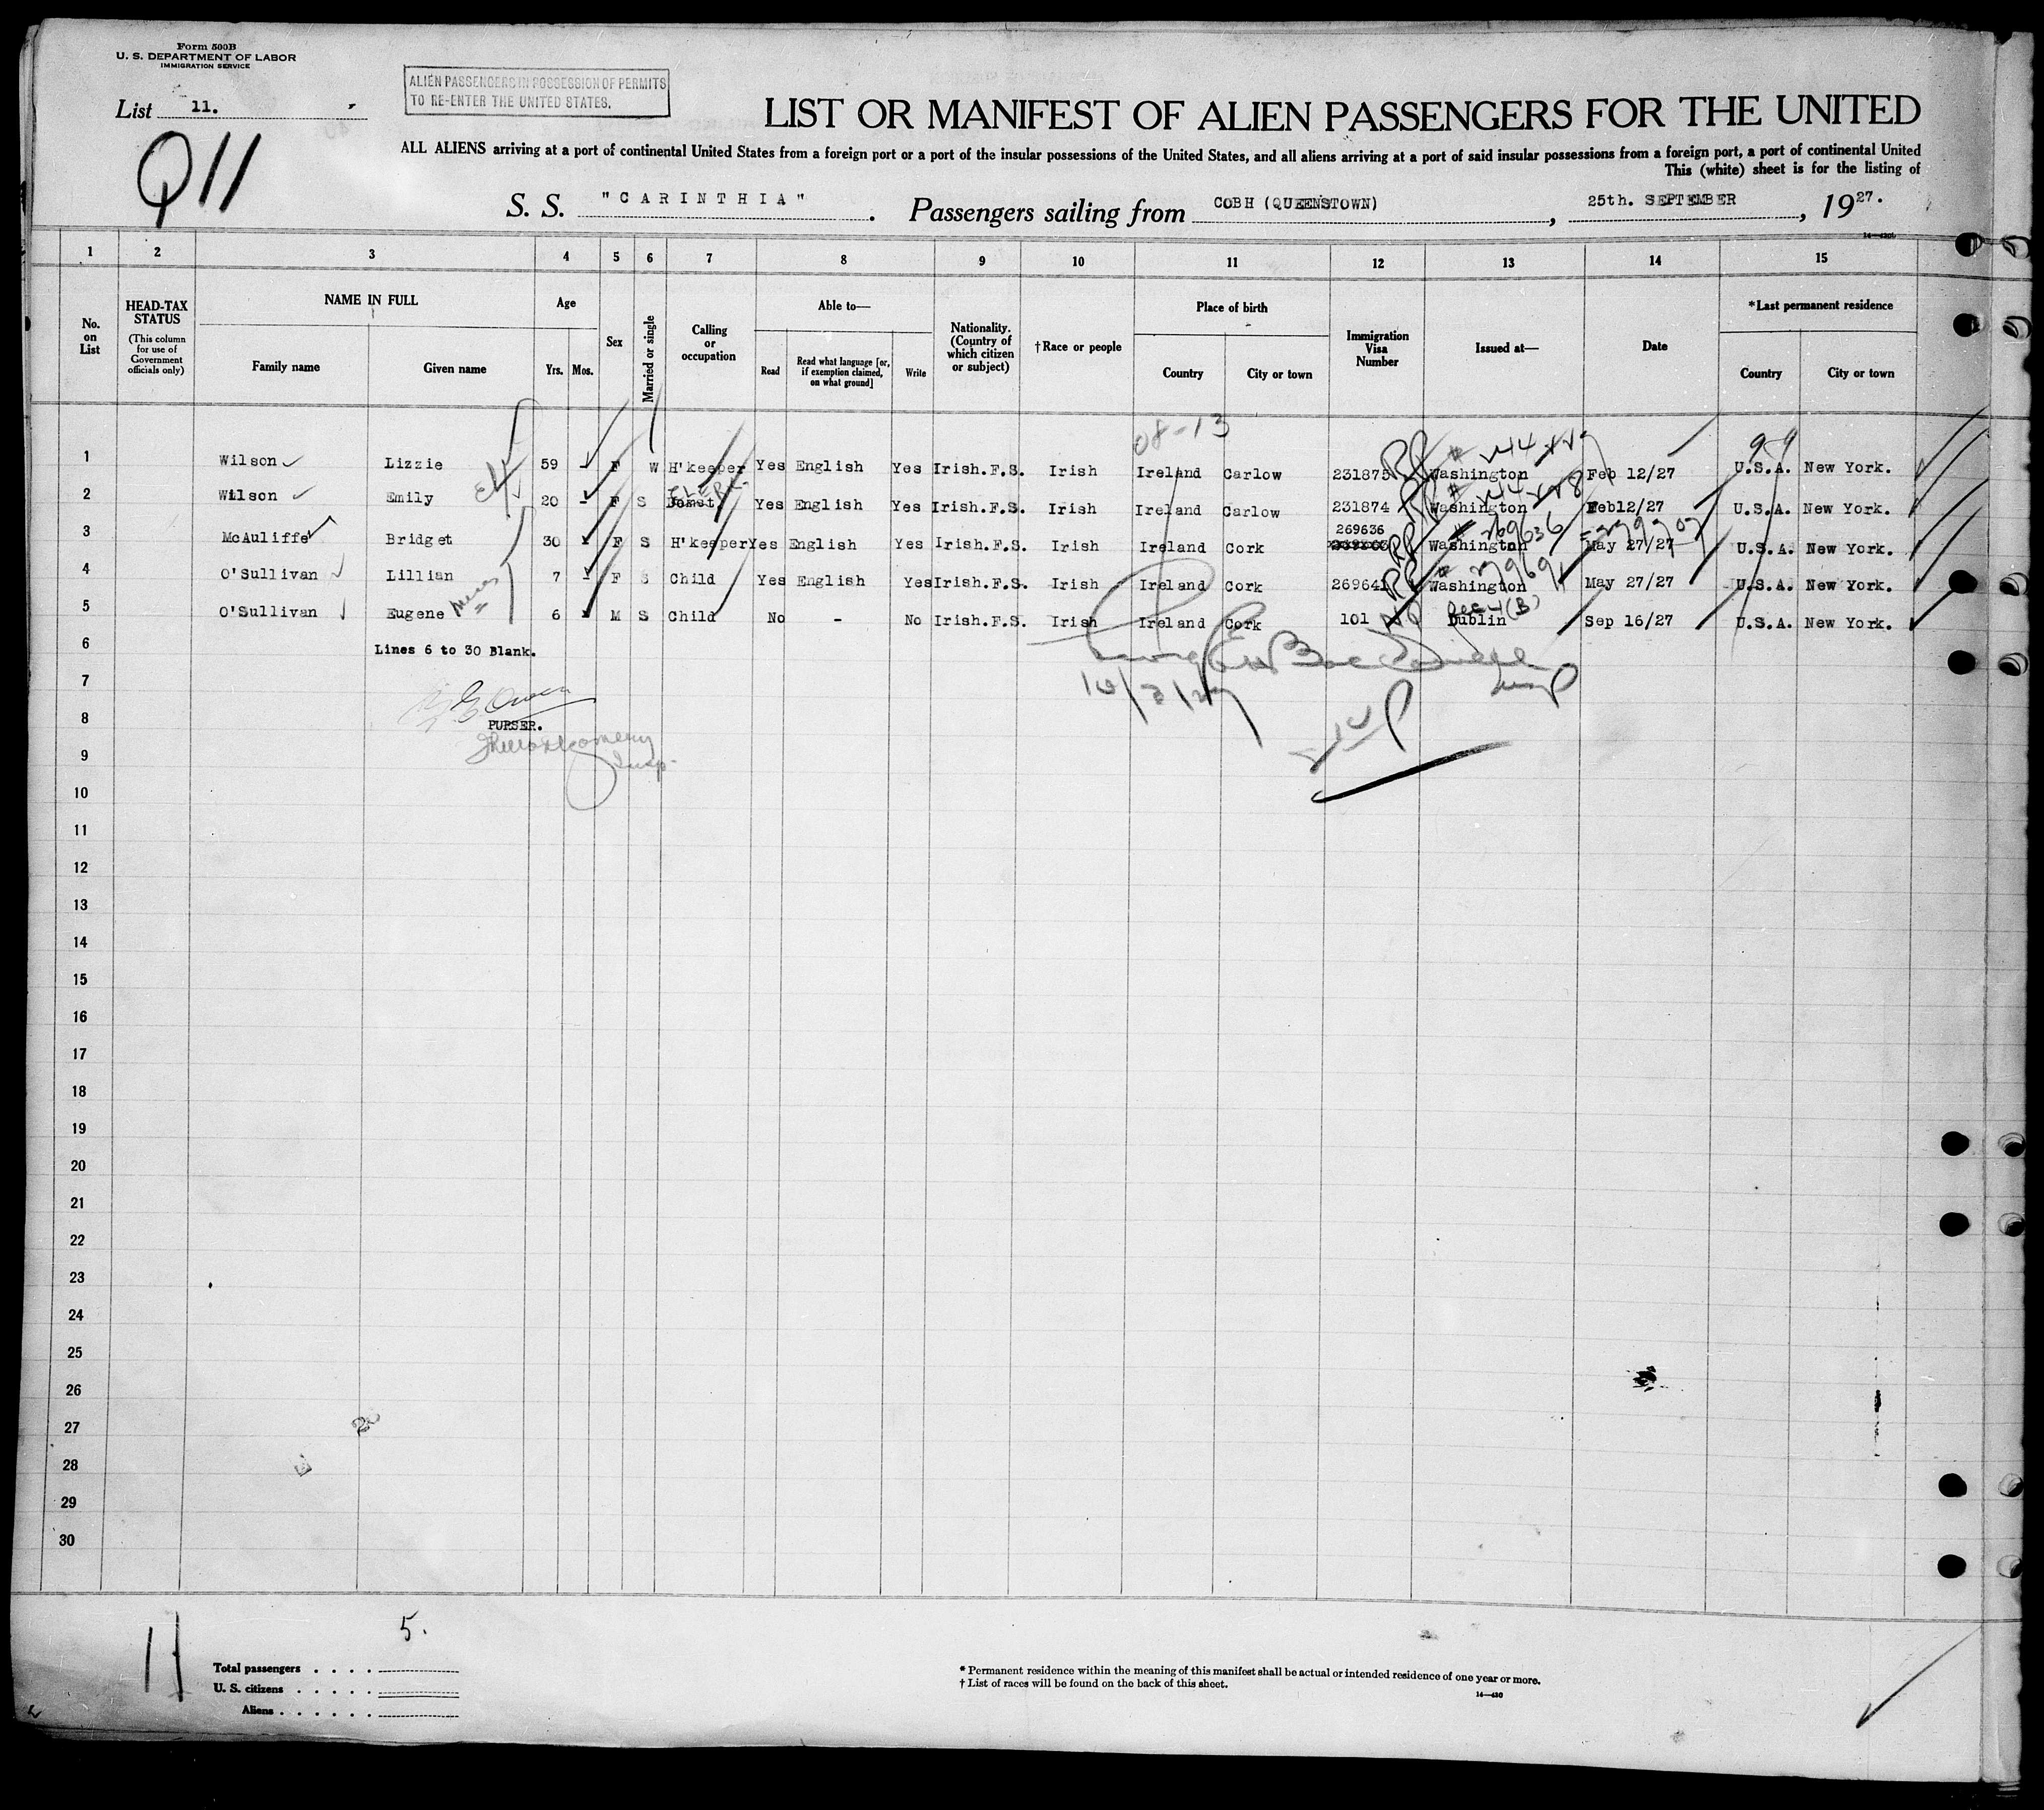 Form 500B
U. S. DEPARTMENT OF LABOR
IMMIGRATION SERVICE
List 11.
ALIEN PASSENGERS IN POSSESSION OF PERMITS
TO RE-ENTER THE UNITED STATES.
Q11
LIST OR MANIFEST OF ALIEN PASSENGERS FOR THE UNITED
ALL ALIENS arriving at a port of continental United States from a foreign port or a port of the insular possessions of the United States, and all aliens arriving at a port of said insular possessions from a foreign port, a port of continental United
This (white) sheet is for the listing of
S. S. "CARINTHIA". Passengers sailing from COBH (QUEENSTOWN), 25th. SEPTEMBER, 1927.
1 2 3 4 5 6 7 8 9 10 11 12 13 14 15
No. on List
HEAD-TAX STATUS
(This column for use of Government officials only)
NAME IN FULL
Family name Given name
Age
Yrs. Mos.
Sex
Married or single
Calling or occupation
Able to—
Read
Read what language [or, if exemption claimed, on what ground]
Write
Nationality. (Country of which citizen or subject)
†Race or people
Place of birth
Country City or town
Immigration Visa Number
Issued at—
Date
*Last permanent residence
Country City or town
08-13
1 Wilson Lizzie 59 - F W H'keeper Yes English Yes Irish.F.S. Irish Ireland Carlow 231875 Washington Feb 12/27 U.S.A. New York.
CLERK
2 Wilson Emily 20 - F S Domst. Yes English Yes Irish.F.S. Irish Ireland Carlow 231874 Washington Feb12/27 U.S.A. New York.
269636
3 McAuliffe Bridget 30 - F S H'keeper Yes English Yes Irish.F.S. Irish Ireland Cork Washington May 27/27 U.S.A. New York.
4 O'Sullivan Lillian 7 - F S Child Yes English Yes Irish.F.S. Irish Ireland Cork 269641 Washington May 27/27 U.S.A. New York.
5 O'Sullivan Eugene 6 - M S Child No - No Irish.F.S. Irish Ireland Cork 101 Dublin Sep 16/27 U.S.A. New York.
6 Lines 6 to 30 Blank.
7
8 PURSER.
9 Insp.
10
11
12
13
14
15
16
17
18
19
20
21
22
23
24
25
26
27
28
29
30
11
5.
Total passengers
U. S. citizens
Aliens
* Permanent residence within the meaning of this manifest shall be actual or intended residence of one year or more.
† List of races will be found on the back of this sheet.
14—430